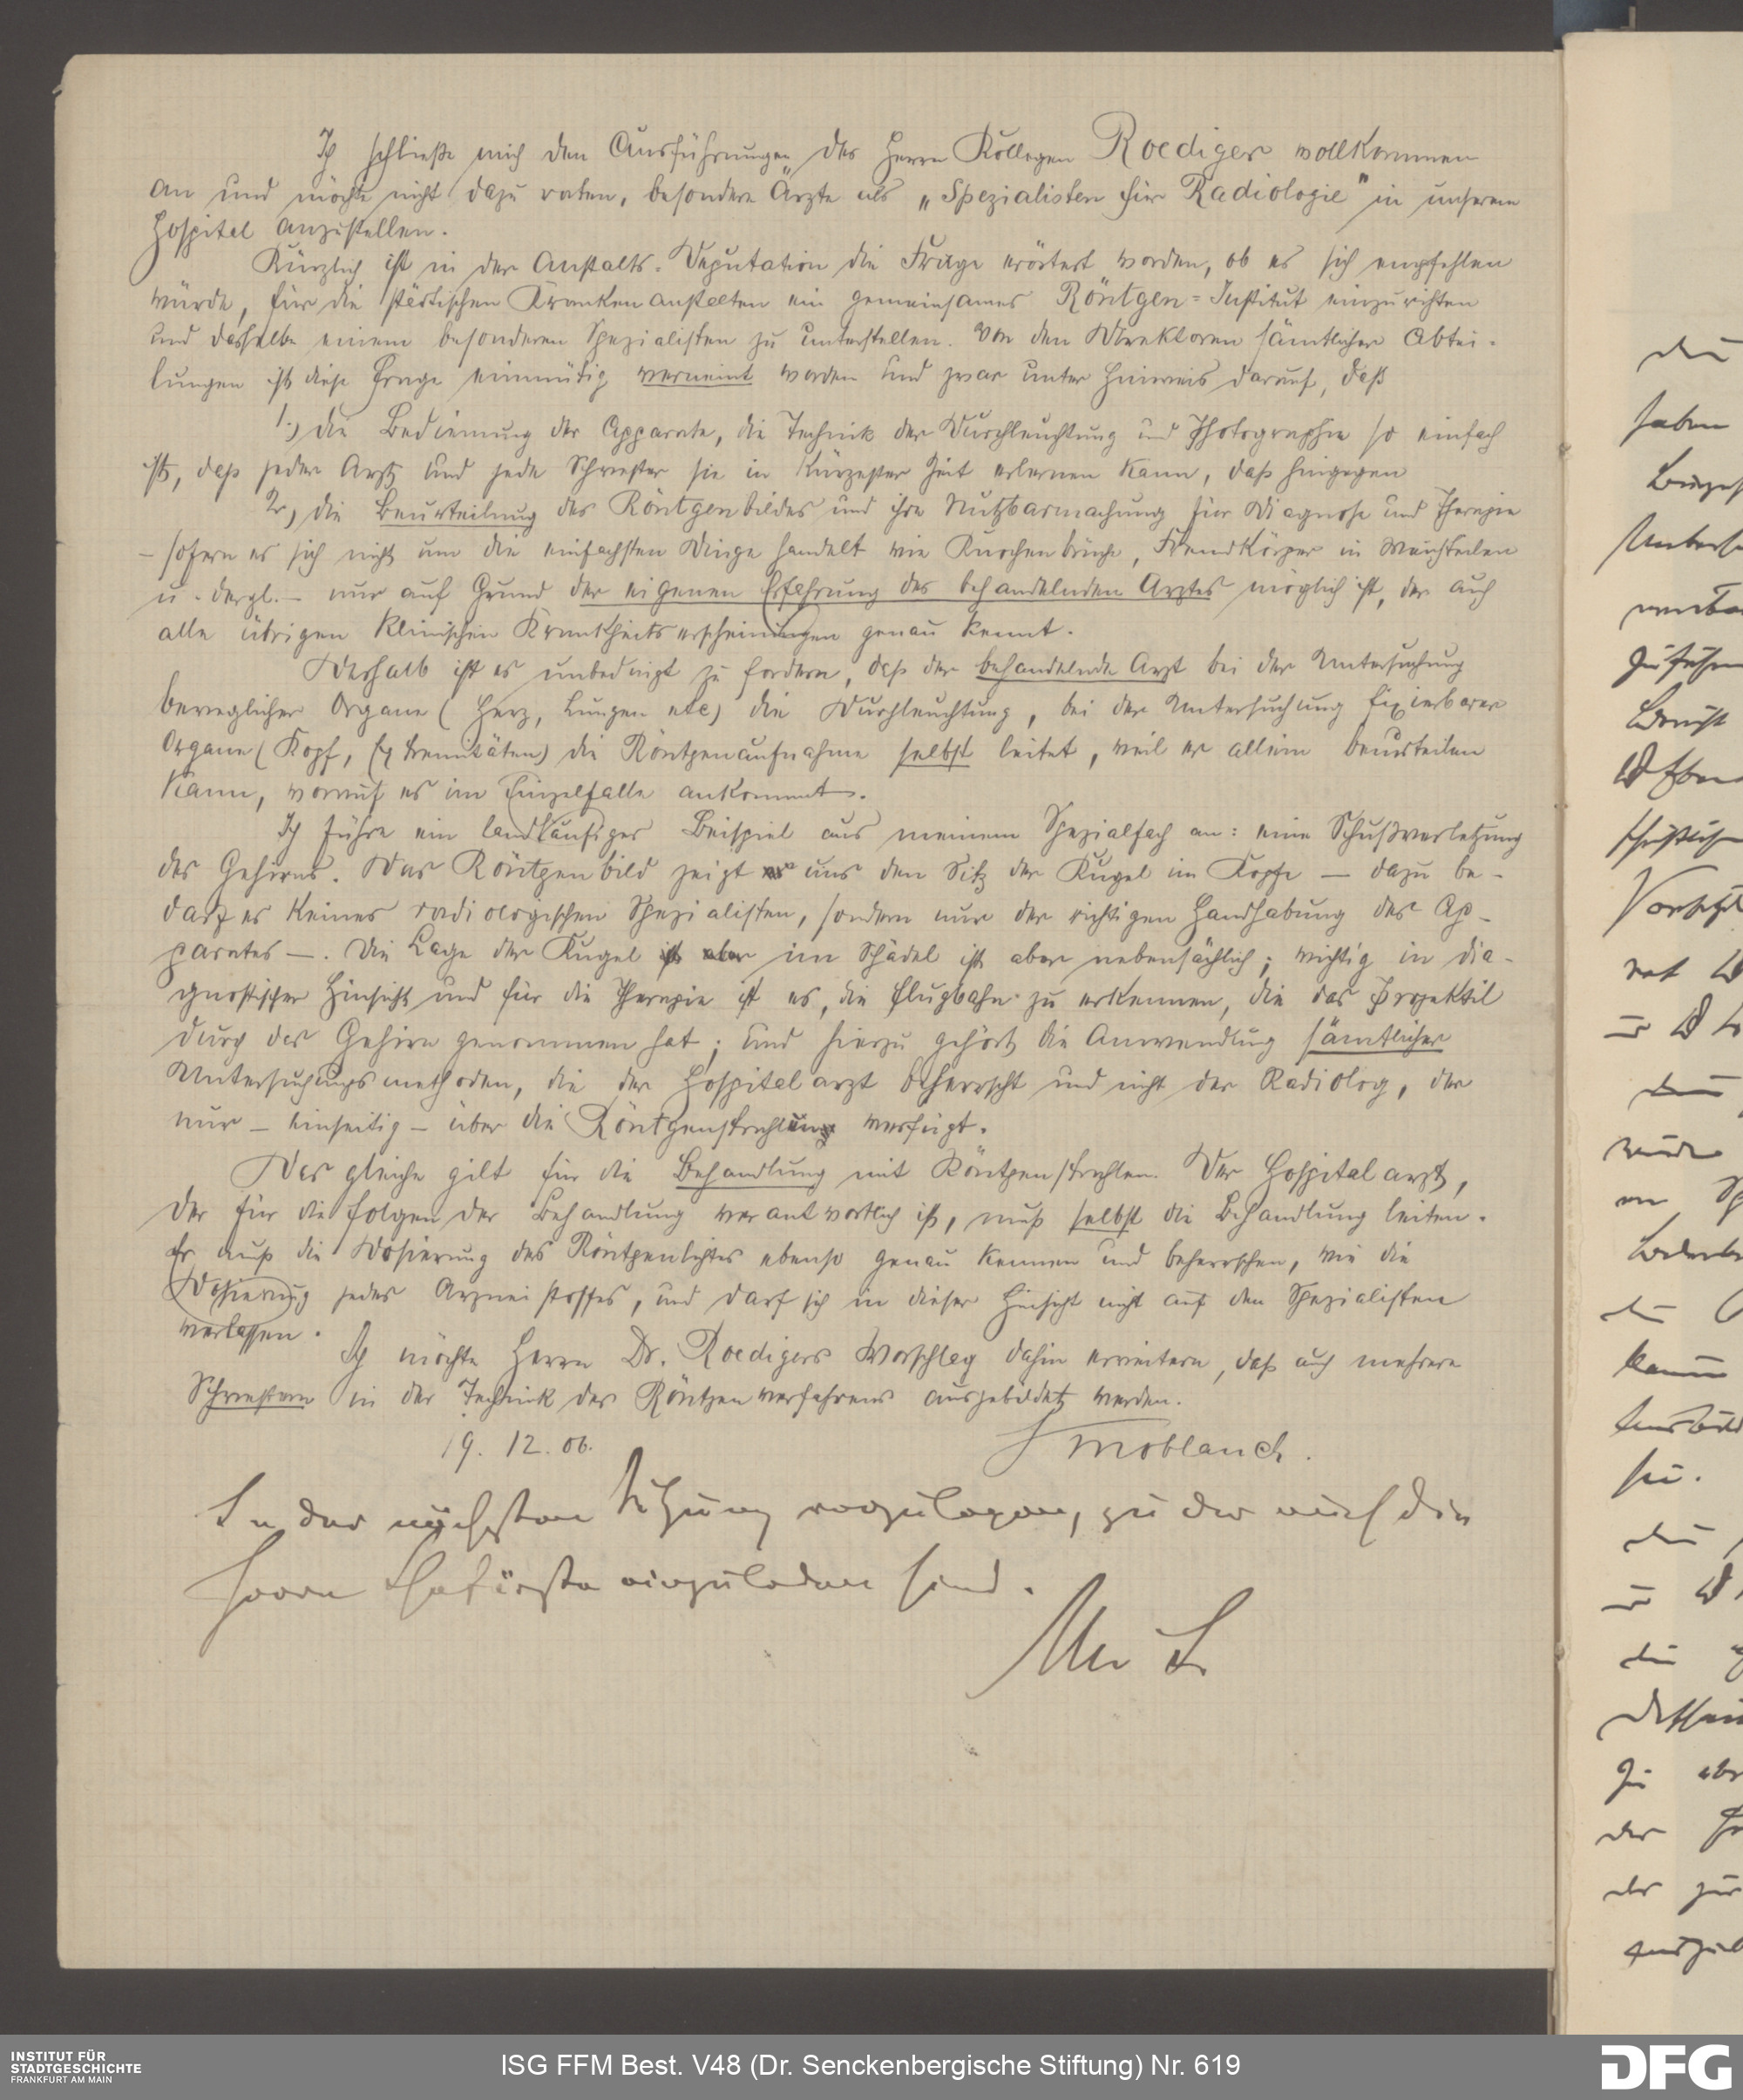 Ich schließe mich den Ausführungen des Herrn Kollegen Roediger vollkommen
an und möchte nicht dazu raten, besondere Ärzte als „Spezialisten für Radiologie" in unserem
Hospital anzustellen.
Kürzlich ist in der Anstalts-Deputation die Frage erörtert worden, ob es sich empfehlen
würde, für die städtischen Krankenanstalten ein gemeinsames Röntgen-Institut einzurichten
und dasselbe einem besonderen Spezialisten zu unterstellen. Von den Direktoren sämtlicher Abtei-
lungen ist diese Frage einmütig verneint worden und zwar unter Hinweis darauf, daß
1.) die Bedienung der Apparate, die Technik der Durchleuchtung und Photographie so einfach
ist, daß jeder Arzt und jede Schwester sie in kürzester Zeit erlernen kann, daß hingegen
2.) die Beurteilung des Röntgenbildes und ihre Nutzbarmachung für Diagnose und Therapie
– sofern es sich nicht um die einfachsten Dinge handelt wie Knochenbrüche, Fremdkörper in Weichteilen
u. dergl. – nur auf Grund der eigenen Erfahrung des behandelnden Arztes möglich ist, der auch
alle übrigen klinischen Krankheitserscheinungen genau kennt.
Deshalb ist es unbedingt zu fordern, daß der behandelnde Arzt bei der Untersuchung
beweglicher Organe (Herz, Lungen etc) die Durchleuchtung, bei der Untersuchung fixierbarer
Organe (Kopf, Extremitäten) die Röntgenaufnahme selbst leitet, weil er allein beurteilen
kann, worauf es im Einzelfalle ankommt.
Ich führe ein landläufiges Beispiel aus meinem Spezialfach an: eine Schußverletzung
des Gehirns. Das Röntgenbild zeigt uns den Sitz der Kugel im Kopfe – dazu be-
darf es keines radiologischen Spezialisten, sondern nur der richtigen Handhabung des Ap-
parates –. Die Lage der Kugel ist aber im Schädel ist aber nebensächlich; wichtig in dia-
gnostischer Hinsicht und für die Therapie ist es, die Flugbahn zu erkennen, die das Projektil
durch das Gehirn genommen hat; und hierzu gehört die Anwendung sämtlicher
Untersuchungsmethoden, die der Hospitalarzt beherrscht und nicht der Radiolog, der
nur – einseitig – über die Röntgenstrahlung verfügt.
Das gleiche gilt für die Behandlung mit Röntgenstrahlen. Der Hospitalarzt,
der für die Folgen der Behandlung verantwortlich ist, muß selbst die Behandlung leiten.
Er muß die Dosierung des Röntgenlichtes ebenso genau kennen und beherrschen, wie die
Dosierung jedes Arzneistoffes, und darf sich in dieser Hinsicht nicht auf den Spezialisten
verlassen.
Ich möchte Herrn Dr. Roedigers Vorschlag dahin erweitern, daß auch mehrere
Schwestern in der Technik des Röntgenverfahrens ausgebildet werden.
19. 12. 06.
In der nächsten Sitzung vorzulegen, zu der auch die
Herrn Chefärzte einzuladen sind.
haben
ISG FFM Best. V48 (Dr. Senckenbergische Stiftung) Nr. 619
INSTITUT FÜR
STADTGESCHICHTE
FRANKFURT AM MAIN
DFG